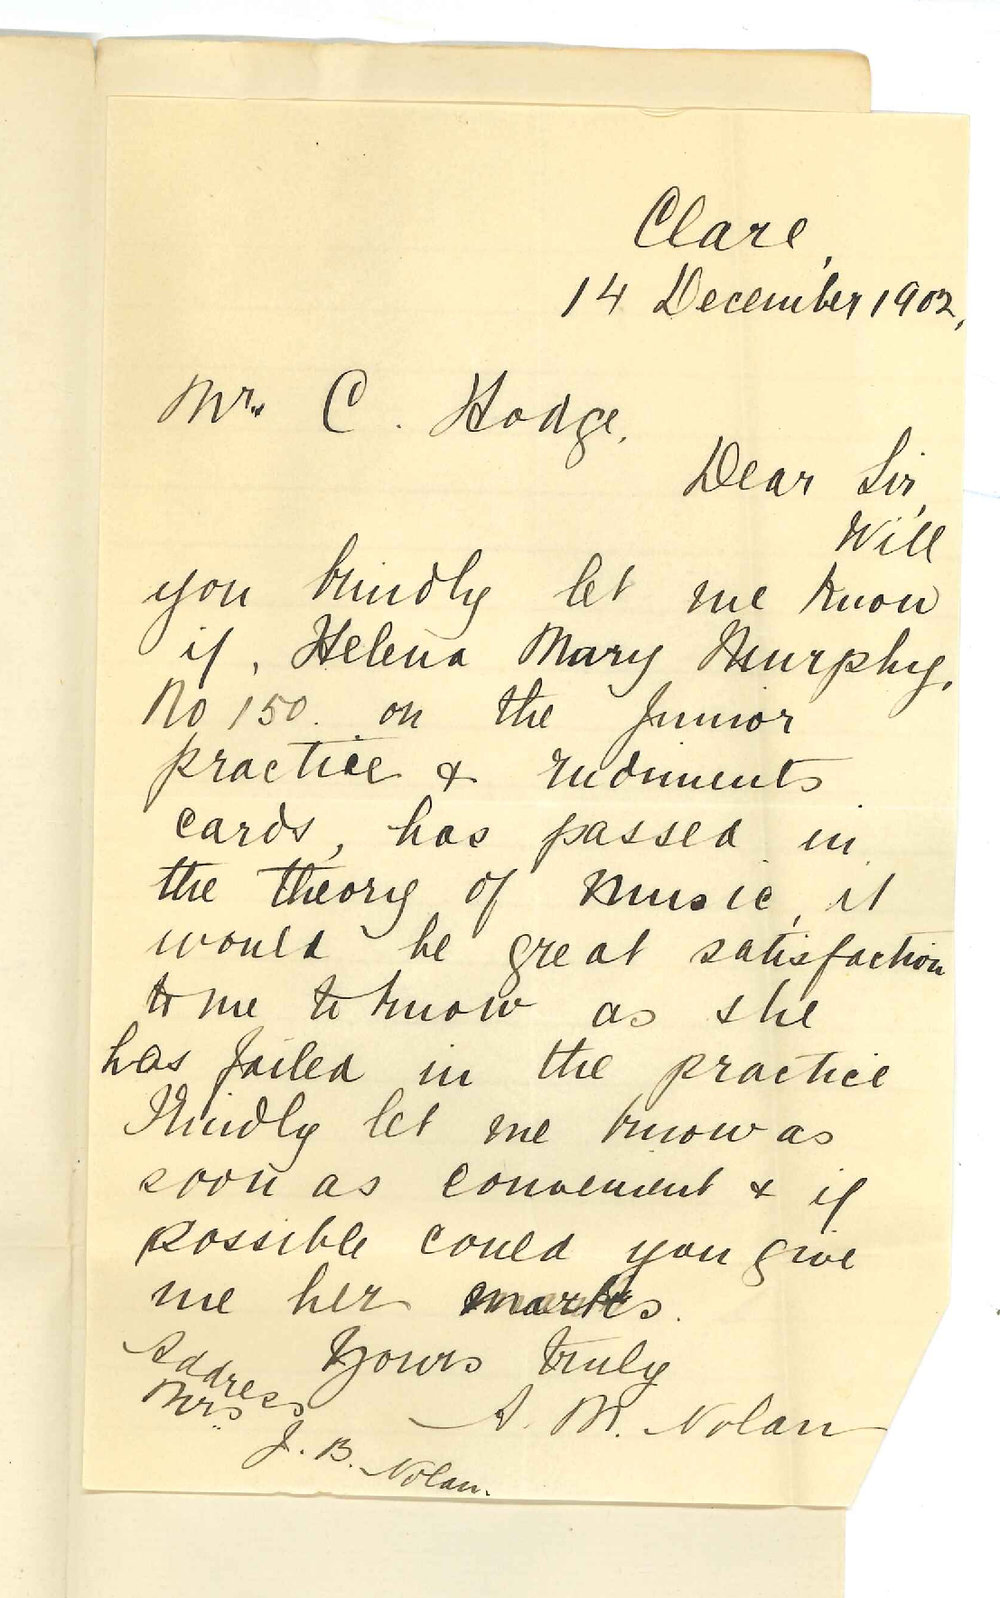 Clare,
14 December 1902,
Mr. C. Hodge,
Dear Sir,
Will
you kindly let me know
if, Helena Mary Murphy,
No 150. on the Junior
practice & rudiments
cards, has passed in
the theory of Music, it
would be great satisfaction
to me to know as she
has failed in the practice
Kindly let me know as
soon as convenient & if
possible could you give
me her marks.
Yours truly
A. M. Nolan
Address
Mrs J. B. Nolan.